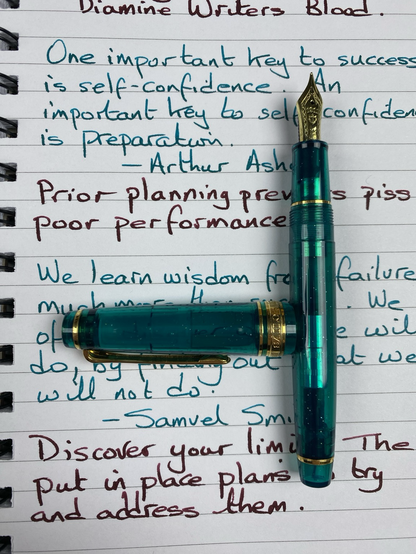 Diamine Writers Blood.
One important key to success
is self-confidence. An
important key to self-confiden
is preparation.
—Arthur Ash
Prior planning prev s piss
poor performance
We learn wisdom fro failure
much more . We
of e will
do, by finding out at we
will not do.
—Samuel Smi
Discover your limi The
put in place plans try
and address them.